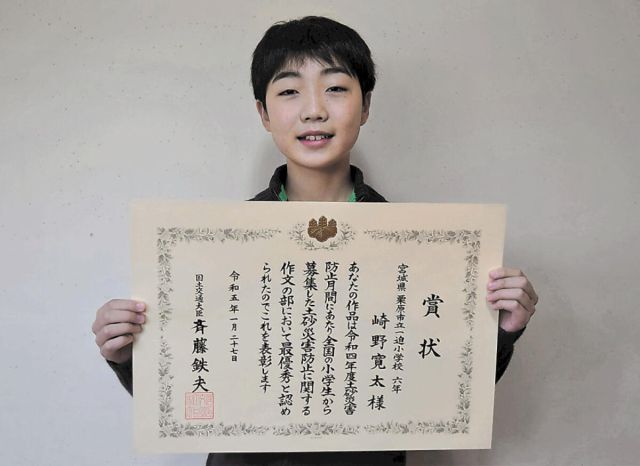 賞状
宮城県 栗原市立一迫小学校 六年
崎野寛太様
あなたの作品は令和四年度土砂災害
防止月間にあたり全国の小学生から
募集した土砂災害防止に関する
作文の部において最優秀と認め
られたのでこれを表彰します
令和五年一月二十七日
国土交通大臣 斉藤鉄夫